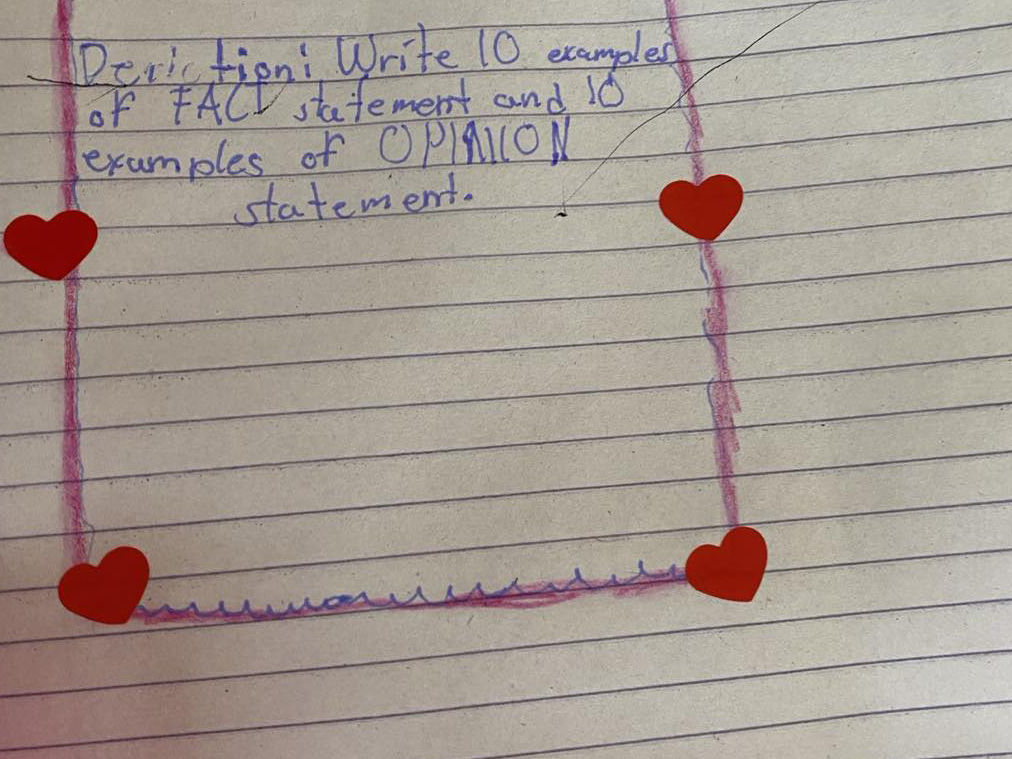 Deriction: Write 10 examples
of FACT statement and 10
examples of OPINION
statement.